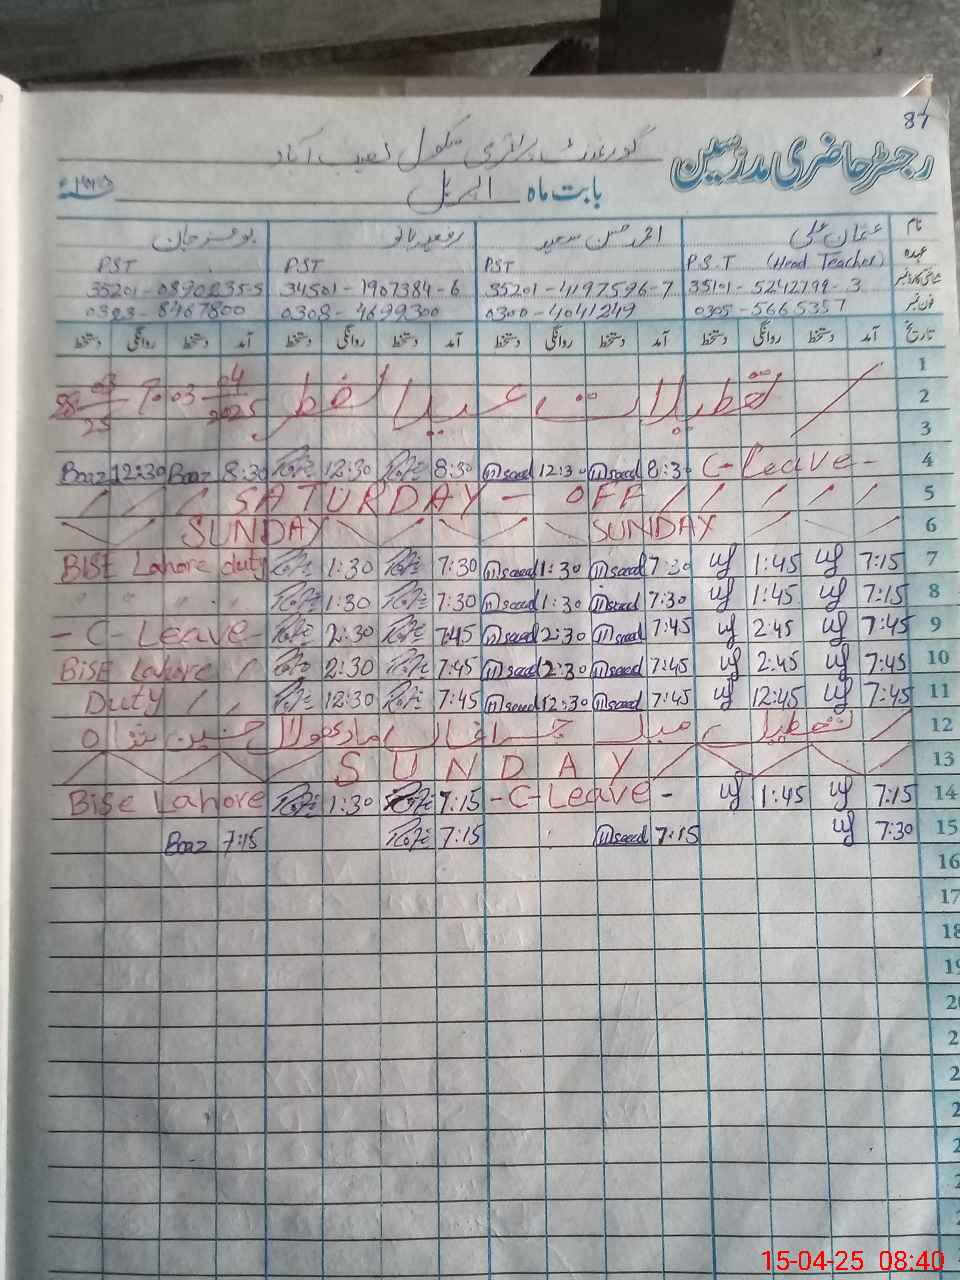 87
رجسٹر حاضری مدرسین گورنمنٹ پرائمری سکول نصیب آباد
بابت ماہ اپریل
نام عثمان علی احمد حسن سعید رفیعہ بانو
عہدہ P.S.T (Head Teacher) PST PST PST
شناختی کارڈ نمبر 35101-5242799-3 35201-4197596-7 34501-1907384-6 35201-0890235-5
فون نمبر 0305-5665357 0300-4041249 0308-4699300 0323-8467800
تاریخ آمد دستخط روانگی دستخط آمد دستخط روانگی دستخط آمد دستخط روانگی دستخط آمد دستخط روانگی دستخط
1
2 تعطیلات عید الفطر 03 04 2025 28 03 25
3
4 C-Leave- 8:30 saeed 12:30 saeed 8:30 Rafi 12:30 Rafi 8:30 Baaz 12:30 Baaz
5 SATURDAY - OFF
6 SUNDAY SUNDAY
7 7:15 1:45 7:30 saeed 1:30 saeed 7:30 Rafi 1:30 Rafi BISE Lahore duty
8 7:15 1:45 7:30 saeed 1:30 saeed 7:30 Rafi 1:30 Rafi " " " "
9 7:45 2:45 7:45 saeed 2:30 saeed 7:45 Rafi 2:30 Rafi -C-Leave-
10 7:45 2:45 7:45 saeed 2:30 saeed 7:45 Rafi 2:30 Rafi BISE Lahore
11 7:45 12:45 7:45 saeed 12:30 saeed 7:45 Rafi 12:30 Rafi Duty
12 تعطیل میلہ چراغاں مادھو لال حسین
13 SUNDAY
14 7:15 1:45 -C-Leave- 7:15 Rafi 1:30 Rafi BISe Lahore
15 7:30 7:15 saeed 7:15 Rafi 7:15 Baaz
16
17
18
19
15-04-25 08:40